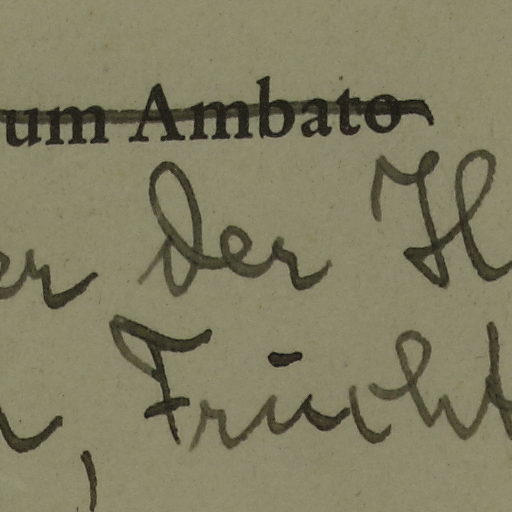 um Ambato
er der H
, Frücht